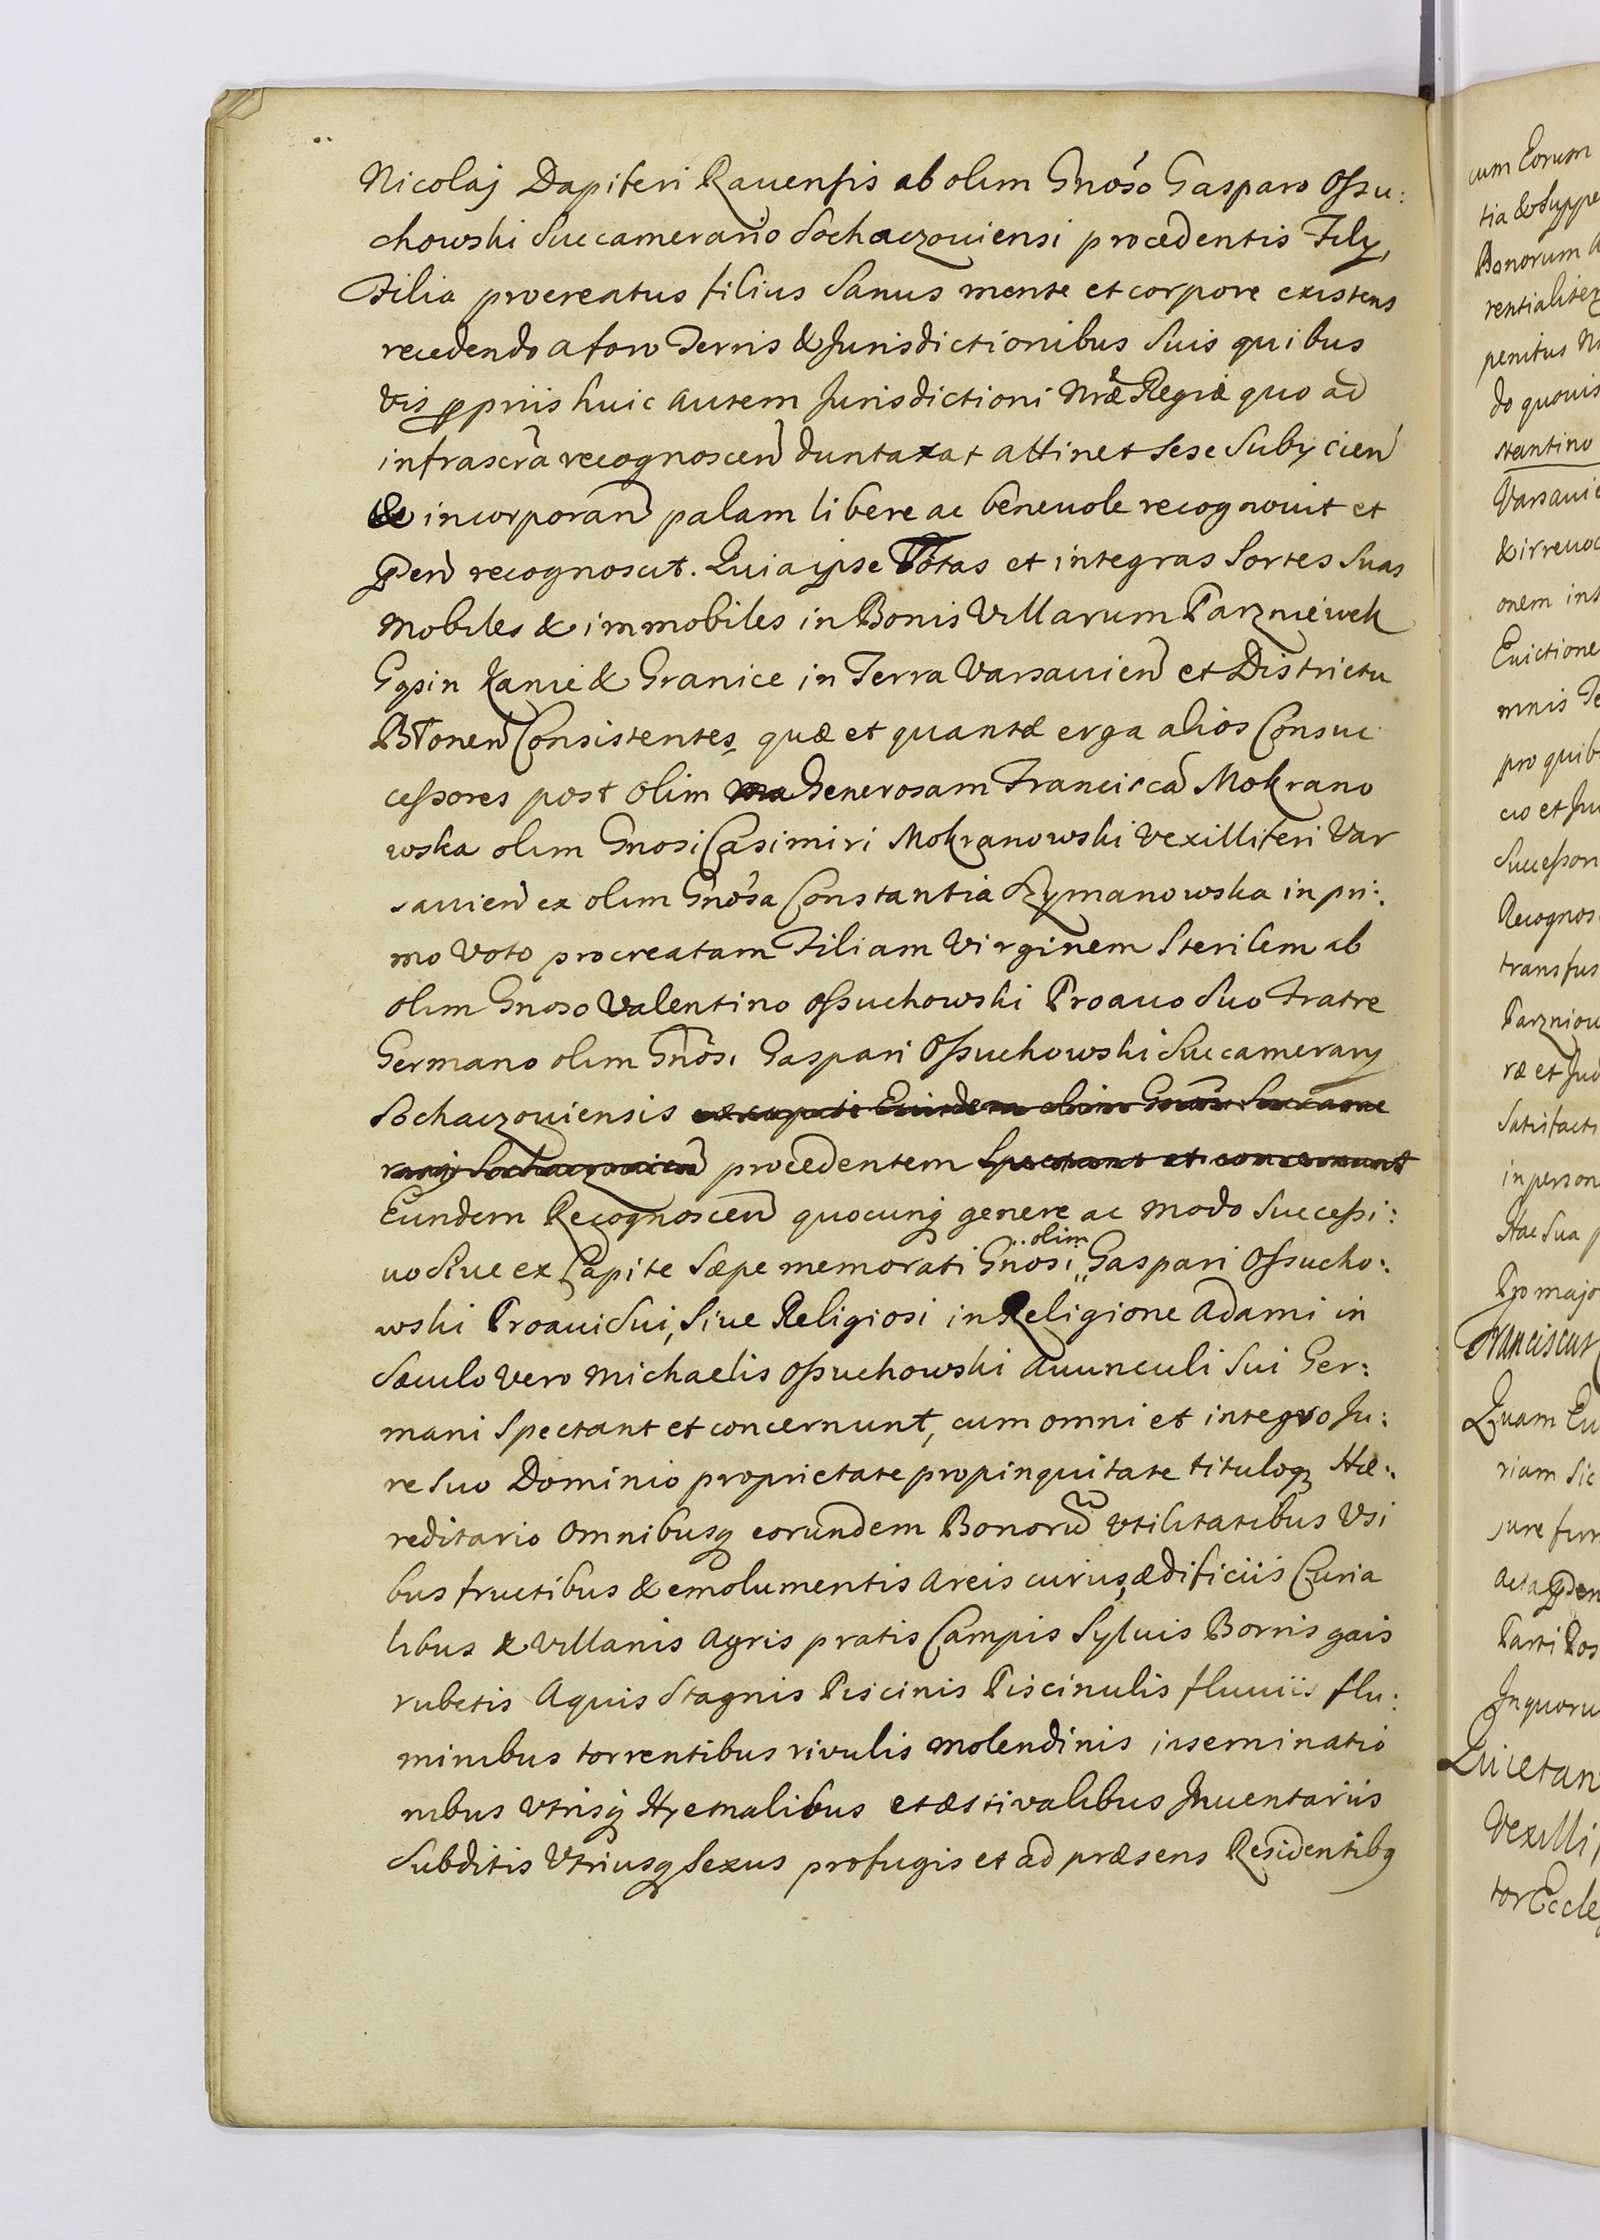 Nicolaj Dapiferi Rauensis ab olim Gnoso Gasparo Ossu:
chowski Succamerario Sochaczouiensi procedentis Filij,
Filia procreatus filius Sanus mente et corpore existens
recedendo a foro Terris & Jurisdictionibus Suis quibus
vis ppriis huic autem Jurisdictioni Nræ Regiæ quo ad
infrascra recognoscen duntaxat attinet Sese Subijcien
& incorporan palam libere ac beneuole recognouit et
pden recognoscit. Quia ipse Totas et integras Sortes Suas
Mobiles & immobiles in Bonis Villarum Parzniewek
Gąsin Kanie & Granice in Terra Varsauien et Districtu
Błonen Consistentes quæ et quantæ erga alios Consuc
cessores post olim Generosam Franciscã Mokrano
wska olim Gnosi Casimiri Mokranowski Vexilliferi Var
sauien ex olim Gnosa Constantia Szymanowska in pri:
mo Voto procreatam Filiam Virginem Sterilem ab
olim Gnoso Valentino Ossuchowski Proauo Suo Fratre
Germano olim Gnosi Gaspari Ossuchowski Succamerarij
Sochaczouiensis ex capite Eiusdem olim Gnosi Succame
rarij Sochaczouien procedentem Spectant et concernunt
Eundem Recognoscen quocunq genere ac modo Successi:
uo Siue ex Capite Sæpe memorati Gnosi olim Gaspari Ossucho:
wski Proaui Sui, Siue Religiosi in Religione Adami in
Sæculo vero Michaelis Ossuchowski Auunculi Sui Ger:
mani Spectant et concernunt, cum omni et integro Ju:
re Suo Dominio proprietate propinquitate tituloq Hæ:
reditario Omnibusq eorundem Bonorũ Vtilitatibus Vsi
bus fructibus & emolumentis Areis curiis, ædificiis Curia
libus & Villanis Agris pratis Campis Syluis Borris gais
rubetis Aquis Stagnis Piscinis Piscinulis fluuiis flu:
minibus torrentibus rivulis molendinis inseminatio
nibus Vtrisq Hyemalibus et æstivalibus Inuentariis
Subditis Vtriusq Sexus profugis et ad præsens Residentibq
cum Eorum
tia &
Bonorum
rentialiter
penitus
do quouis
stantino
Varsauie
& irreuoc
onem
Euictione
mnis
pro quib
cio et Ju
Successor
Recognos
transfus
Parzniew
ræ et Jud
Satisfacti
in person
Hac Sua
majo
Franciscus
Quam Eu
riam Sic
iure firm
acta pden
Parti Pos
In quoru
Quietan
Vexilli
tor Eccle